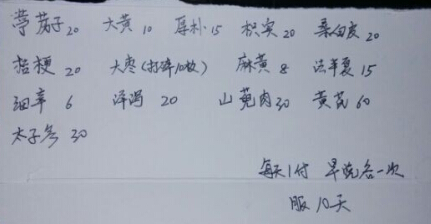 葶苈子20 大黄10 厚朴15 枳实20 桑白皮20
桔梗20 大枣(打碎10枚) 麻黄8 法半夏15
细辛6 泽泻20 山萸肉30 黄芪60
太子参30
每天1付 早晚各一次
服10天